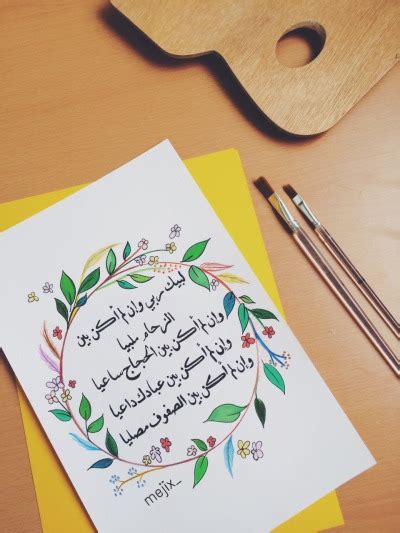 لبيك ربي وإن لم أكن بين
الزحام ملبيا
وإن لم أكن بين الحجاج ساعيا
وإن لم أكن بين عبادك داعيا
وإن لم أكن بين الصفوف مصليا
mejix_